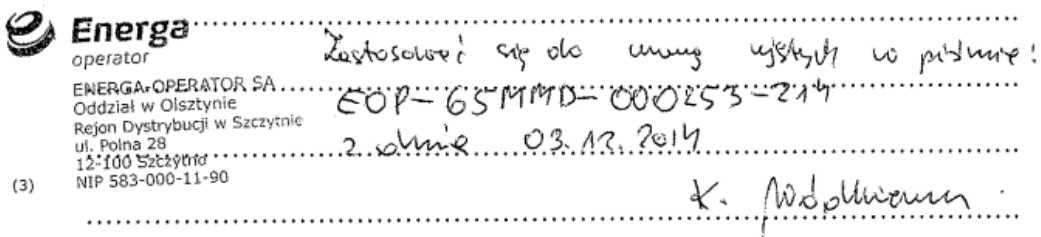 Energa
operator
ENERGA-OPERATOR SA
Oddział w Olsztynie
Rejon Dystrybucji w Szczytnie
ul. Polna 28
12-100 Szczytno
NIP 583-000-11-90
(3)
Zastosować się do uwag ujętych w piśmie:
EOP-65MMD-000253-214
z dnia 03.12.2014
K.